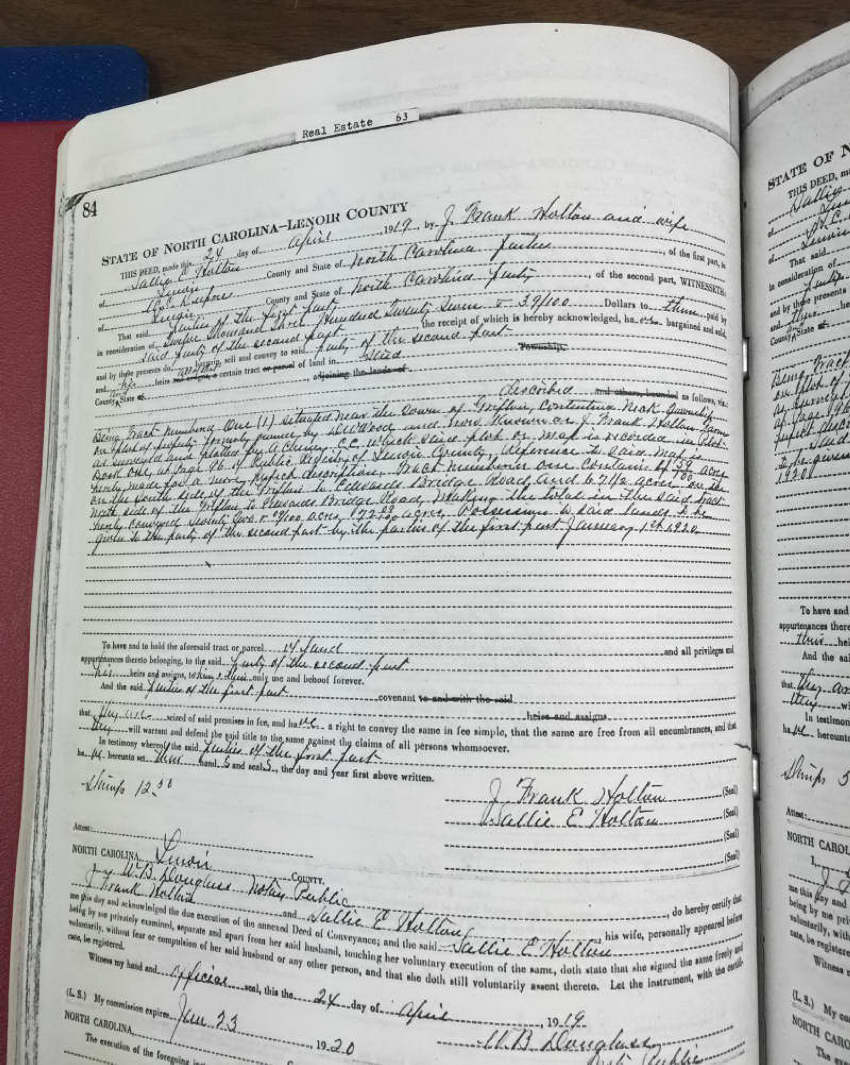 Real Estate 63
84
STATE OF NORTH CAROLINA—LENOIR COUNTY
THIS DEED, made this 24 day of April, 1919, by J. Frank Holton and wife
Sallie E Holton
of Lenoir County and State of North Carolina parties, of the first part, to
of Lenoir County and State of North Carolina party, of the second part, WITNESSETH:
That said parties of the first part
in consideration of Hundred Twenty Seven & 39/100 Dollars to them paid by
said party of the second part, the receipt of which is hereby acknowledged, ha ve bargained and sold,
and by these presents do sell and convey to said party of the second part
and his heirs and assigns, a certain tract or parcel of land in said Township,
County & State of, adjoining the lands of
described and others, bounded as follows, viz:
Being Tract number One (1) situated near the Town of Grifton, Contentnea Neck Township
on plot of property formerly owned by and now known as J. Frank Holton Farm
as surveyed and platted by C.E. which said plot or map is recorded in Plot
Book One, at Page 96 of Public Registry of Lenoir County, Reference to said map is
hereby made for a more perfect description. Tract number one contains acres
on the South side of the Grifton to Edwards Bridge Road, and acres on the
North side of the Grifton to Edwards Bridge Road, Making the total in the said tract
hereby conveyed Seventy two & acres, acres. Possession to said lands to be
given to the party of the second part by the parties of the first part January 1st 1920.
To have and to hold the aforesaid tract or parcel of land and all privileges and
appurtenances thereto belonging, to the said party of the second part
his heirs and assigns, to only use and behoof forever.
And the said parties of the first part covenant to and with the said
heirs and assigns
that they are seized of said premises in fee, and ha ve a right to convey the same in fee simple, that the same are free from all encumbrances, and that
they will warrant and defend the said title to the same against the claims of all persons whomsoever.
In testimony whereof the said parties of the first part
ha ve hereunto set their hand s and seal s, the day and year first above written.
Stamps 12.50
J Frank Holton (Seal)
Sallie E Holton (Seal)
(Seal)
(Seal)
Attest:
NORTH CAROLINA, Lenoir COUNTY.
I, W.B. Douglass Notary Public, do hereby certify that
J Frank Holton and Sallie E Holton, his wife, personally appeared before
me this day and acknowledged the due execution of the annexed Deed of Conveyance; and the said Sallie E. Holton
being by me privately examined, separate and apart from her said husband, touching her voluntary execution of the same, doth state that she signed the same freely and
voluntarily, without fear or compulsion of her said husband or any other person, and that she doth still voluntarily assent thereto. Let the instrument, with the certifi-
cate, be registered.
Witness my hand and official seal, this the 24 day of April, 1919
(L. S.) My commission expires Jan 23 1920
W B Douglass
Public
NORTH CAROLINA
The execution of the foregoing
STATE OF N
THIS DEED,
Sallie
That said
in consideration of
and by these presents
County & State of
Being Tract
1920
To have and
appurtenances there
And the said
that they are
they
In testimony
ha ve hereunto
Stamps 5
Attest:
NORTH CAROL
me this day and
being by me priv
voluntarily, with
cate, be registere
Witness
(L. S.) My co
NORTH CARO
The exe